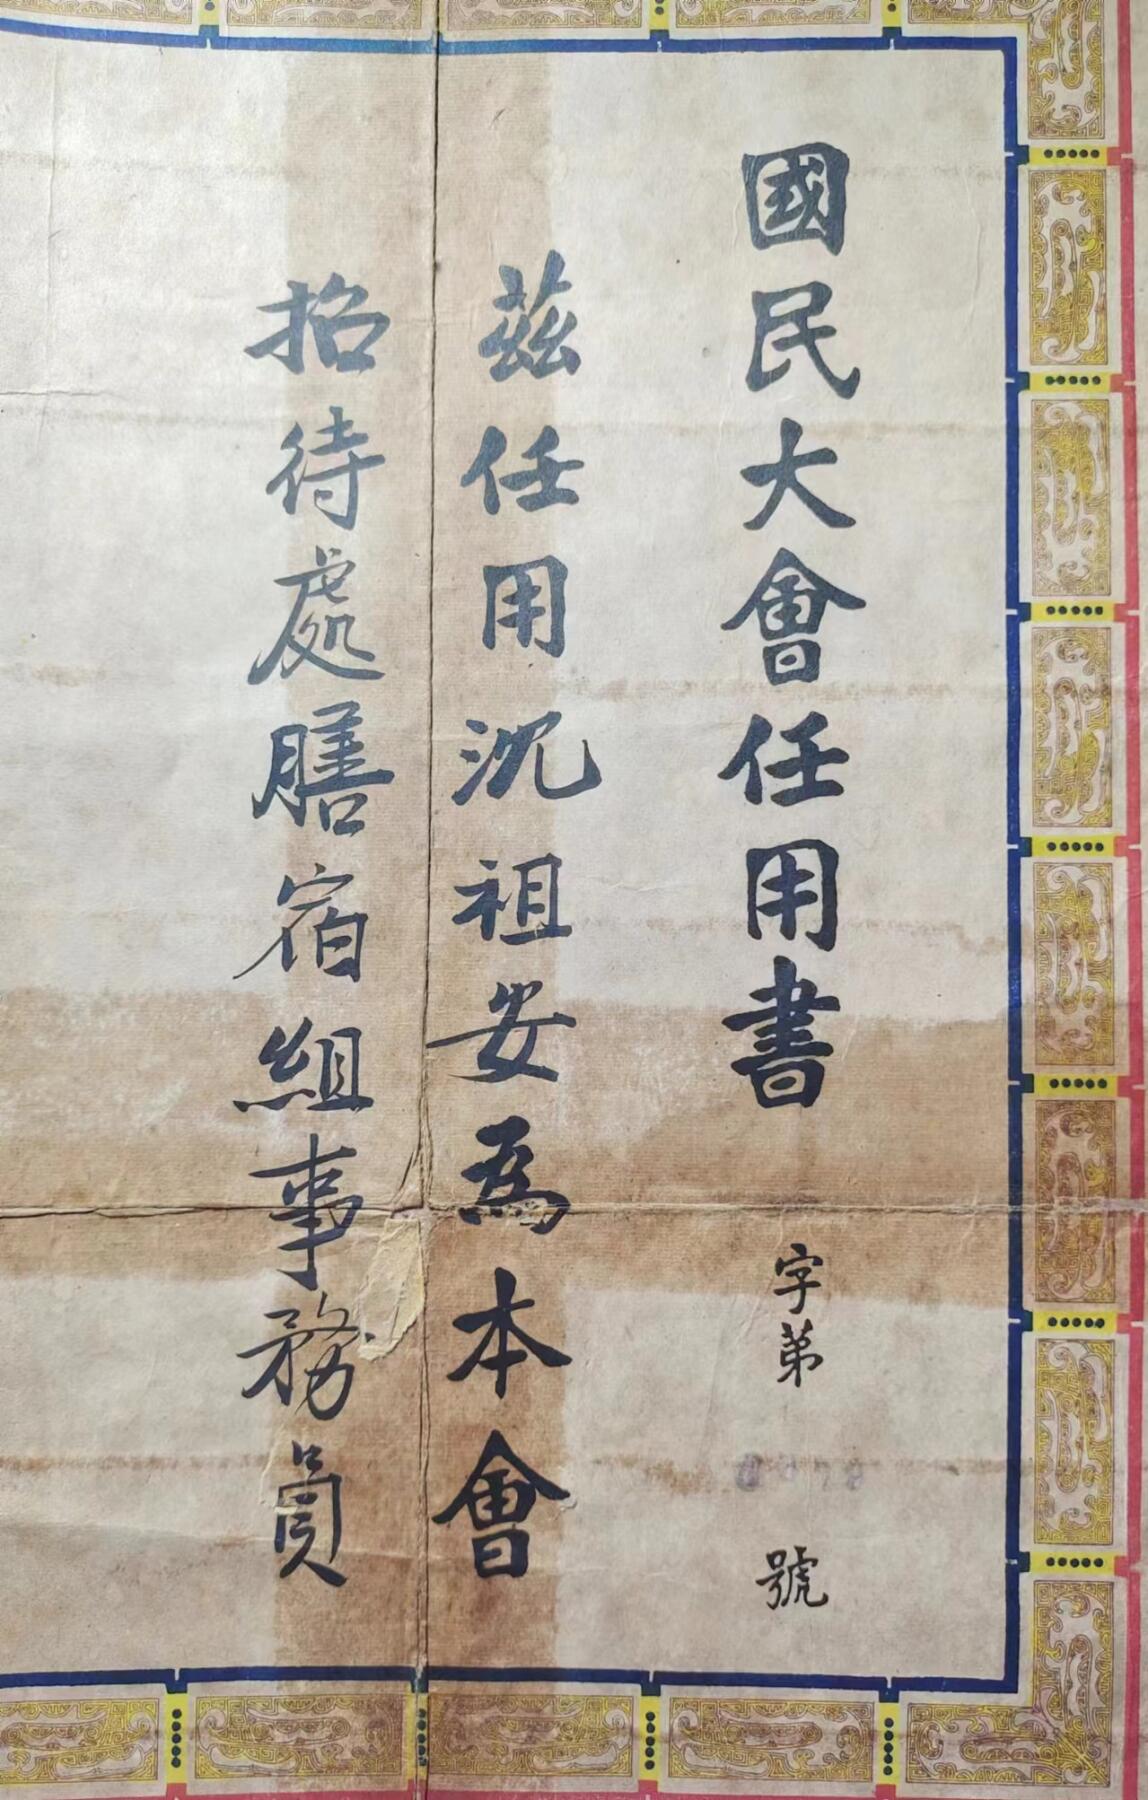 國民大會任用書
字第
號
茲任用沉祖安為本會
招待處膳宿組事務員